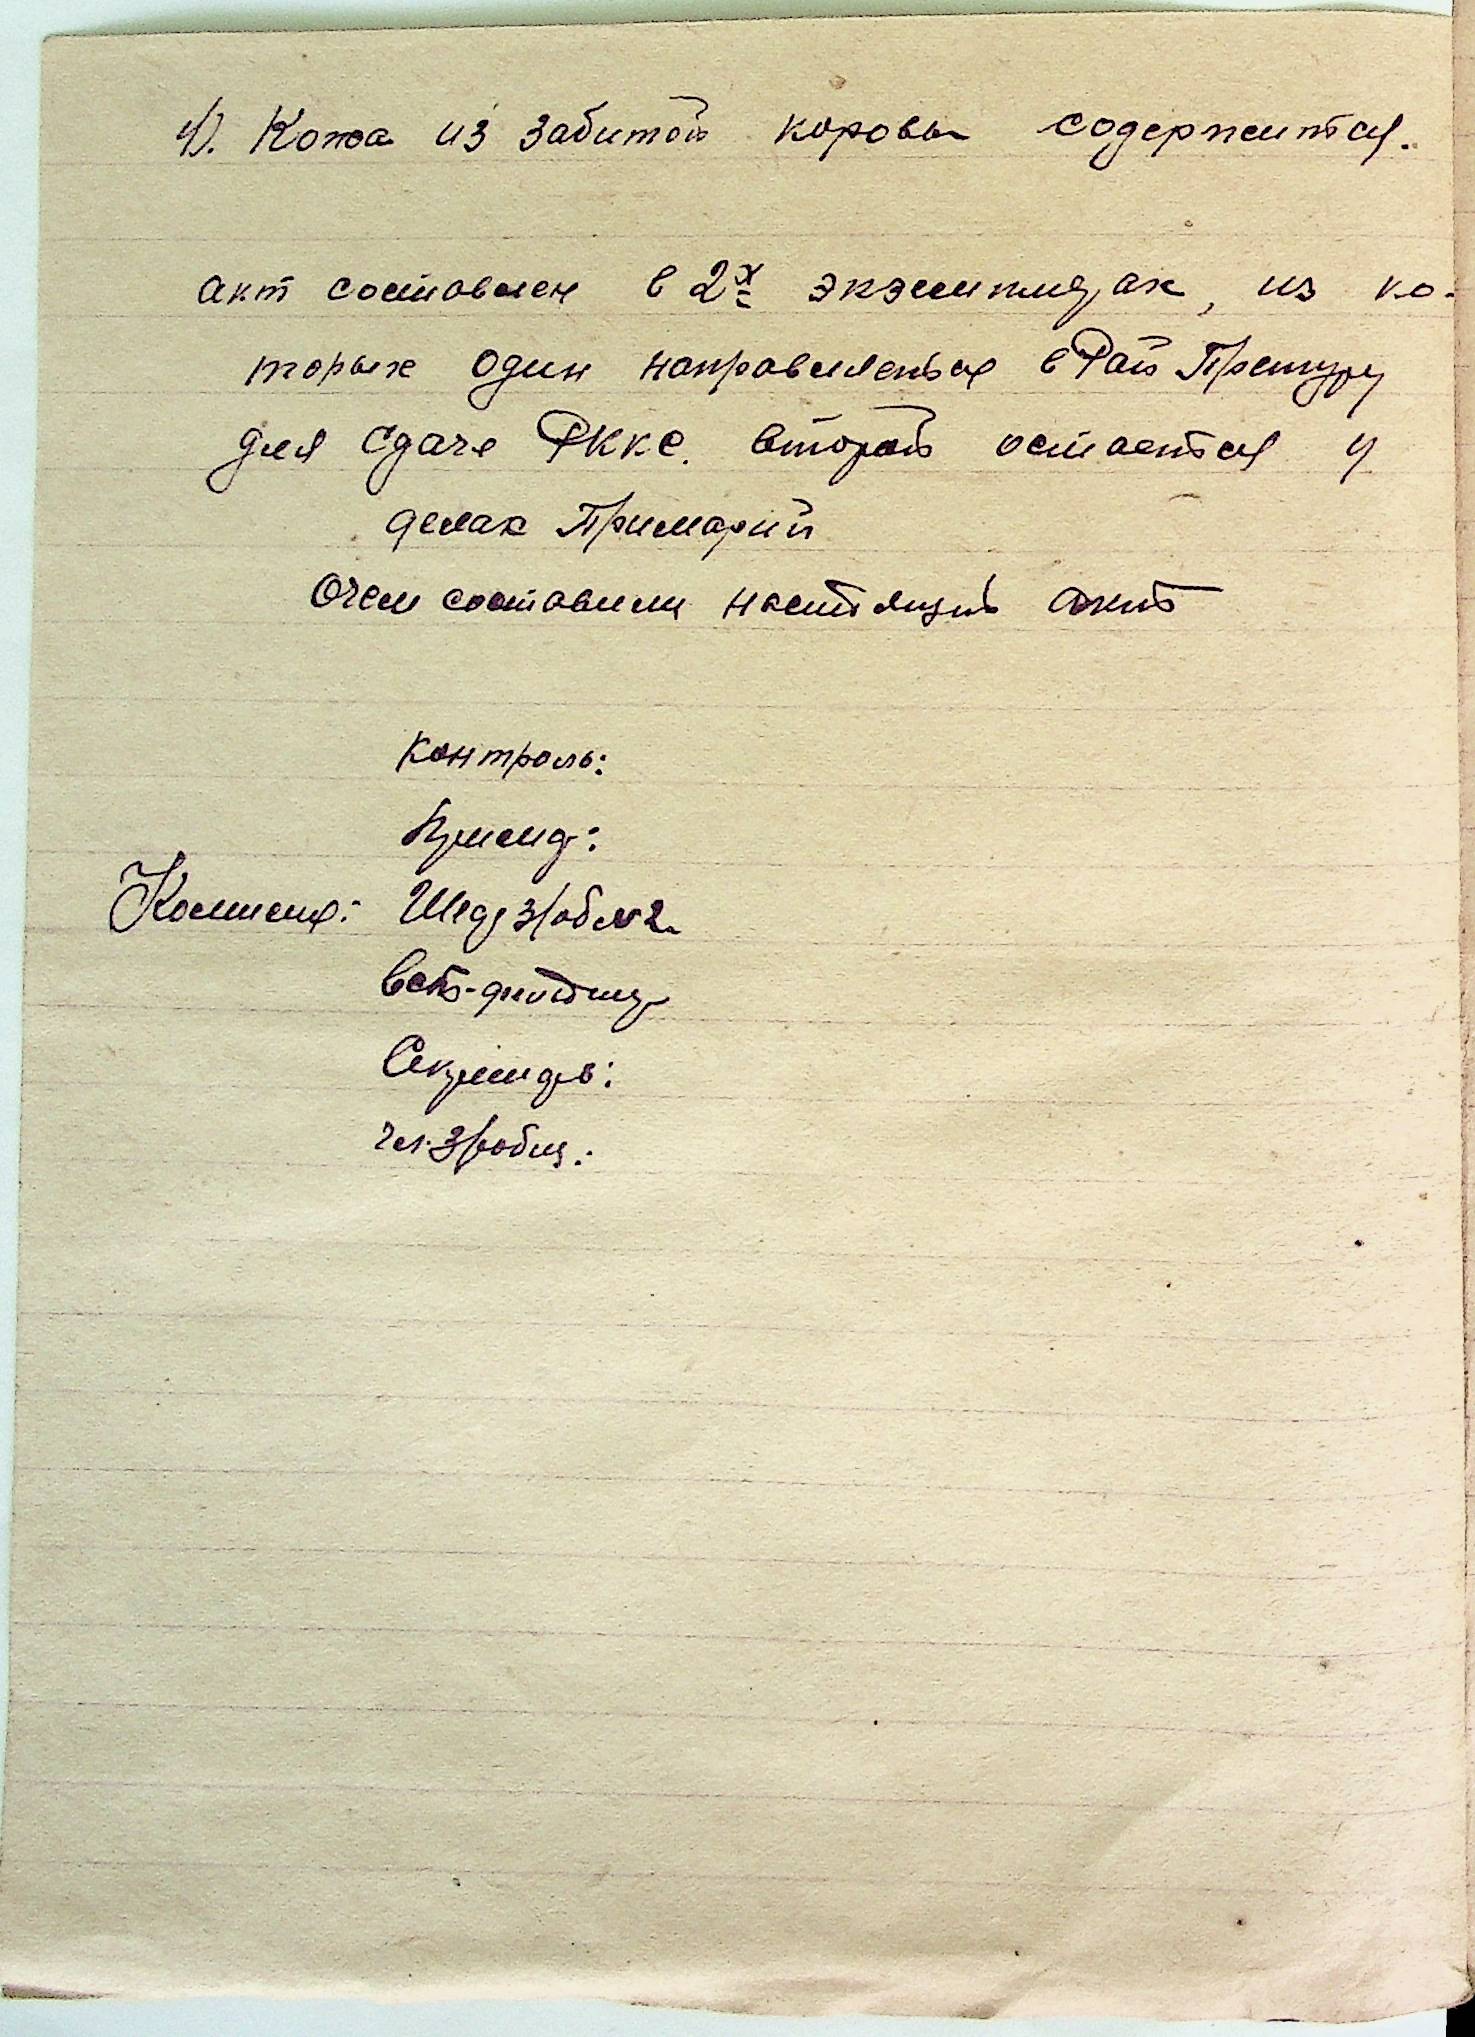 4). Кожа из забитой коровы содержится.
акт составлен в 2х экземплярах, из ко-
торых один направляется в Рай Претуру
для сдаче РККС. второй остается у
делах Примарии
О чем составили настоящий акт
Контроль:
Комисия:
Вет-фельдшер
Секретарь: